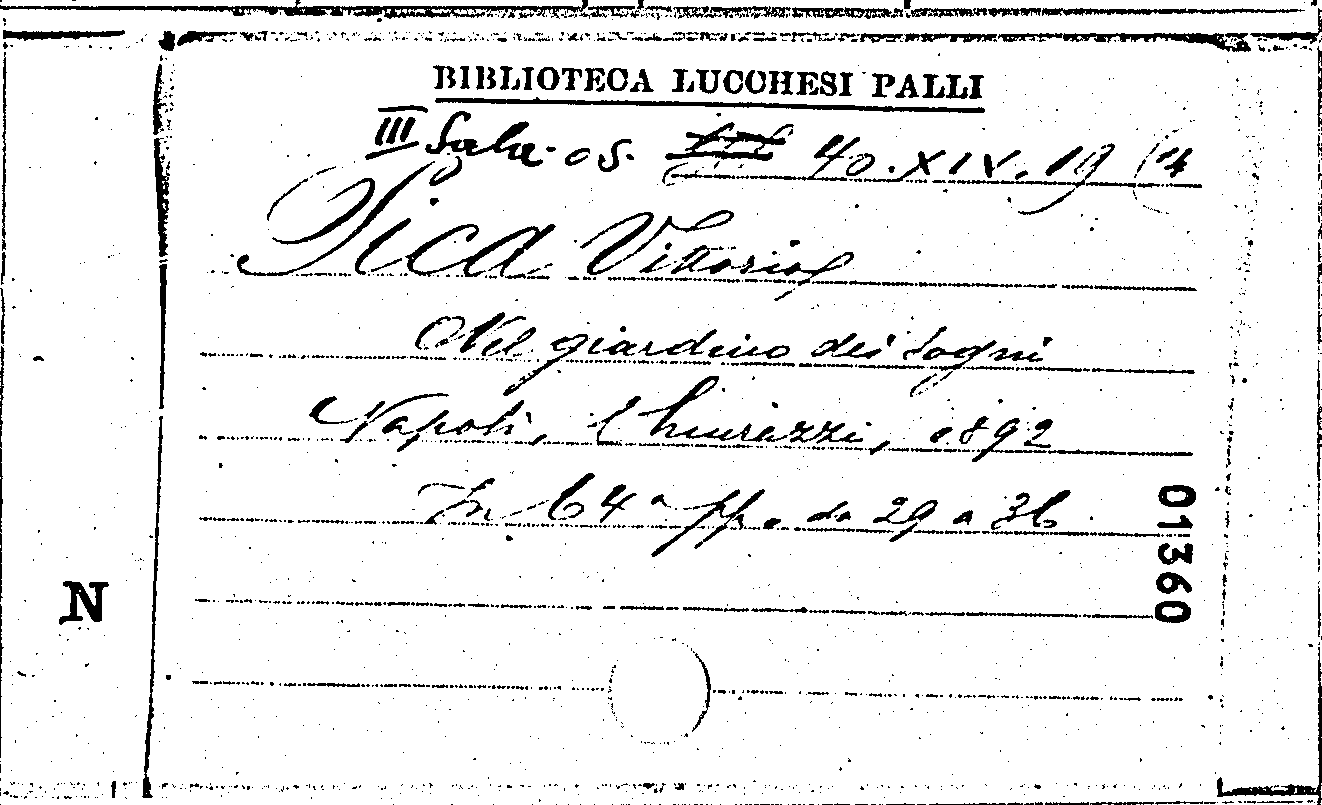 BIBLIOTECA LUCCHESI PALLI
III Sala. os. 40. XIV. 19 (4
Pica Vittorio
Nel giardino dei sogni
Napoli, Chiurazzi, 1892
In 64° pp. da 29 a 36
01360
N